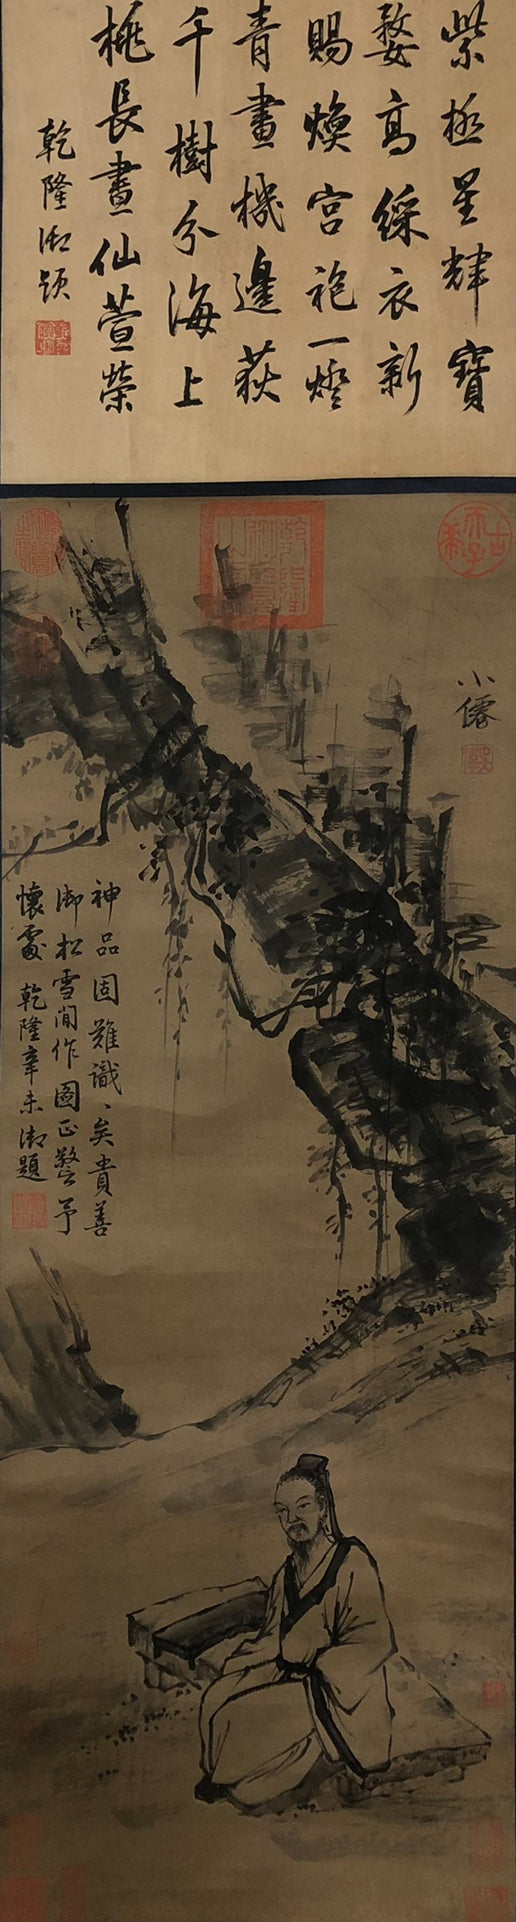 紫極星輝寶
婺高綵衣新
賜煥宮袍一燈
青畫機邊荻
千樹分海上
桃長晝仙萱榮
乾隆御題
古希天子
小僊
神品固難識、矣貴善
御松雪閒作圖正警予
懷處 乾隆辛未御題